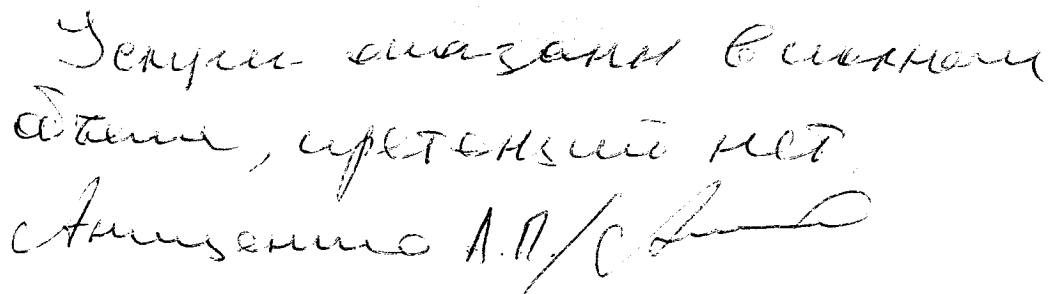 Услуги оказаны в полном
объеме, претензий нет
Анищенко А.П./